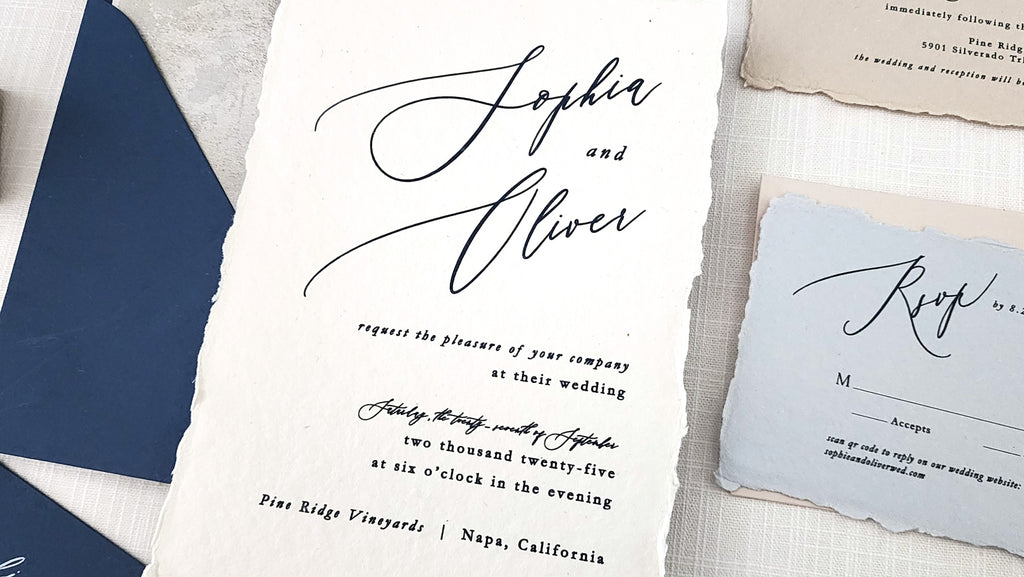 Sophia
and
Oliver
request the pleasure of your company
at their wedding
Saturday, the twenty-seventh of September
two thousand twenty-five
at six o’clock in the evening
Pine Ridge Vineyards | Napa, California
immediately following
Pine Ridge
5901 Silverado
the wedding and reception will
Rsvp
by 8.2
M
Accepts
scan qr code to reply on our wedding website:
sophieandoliverwed.com